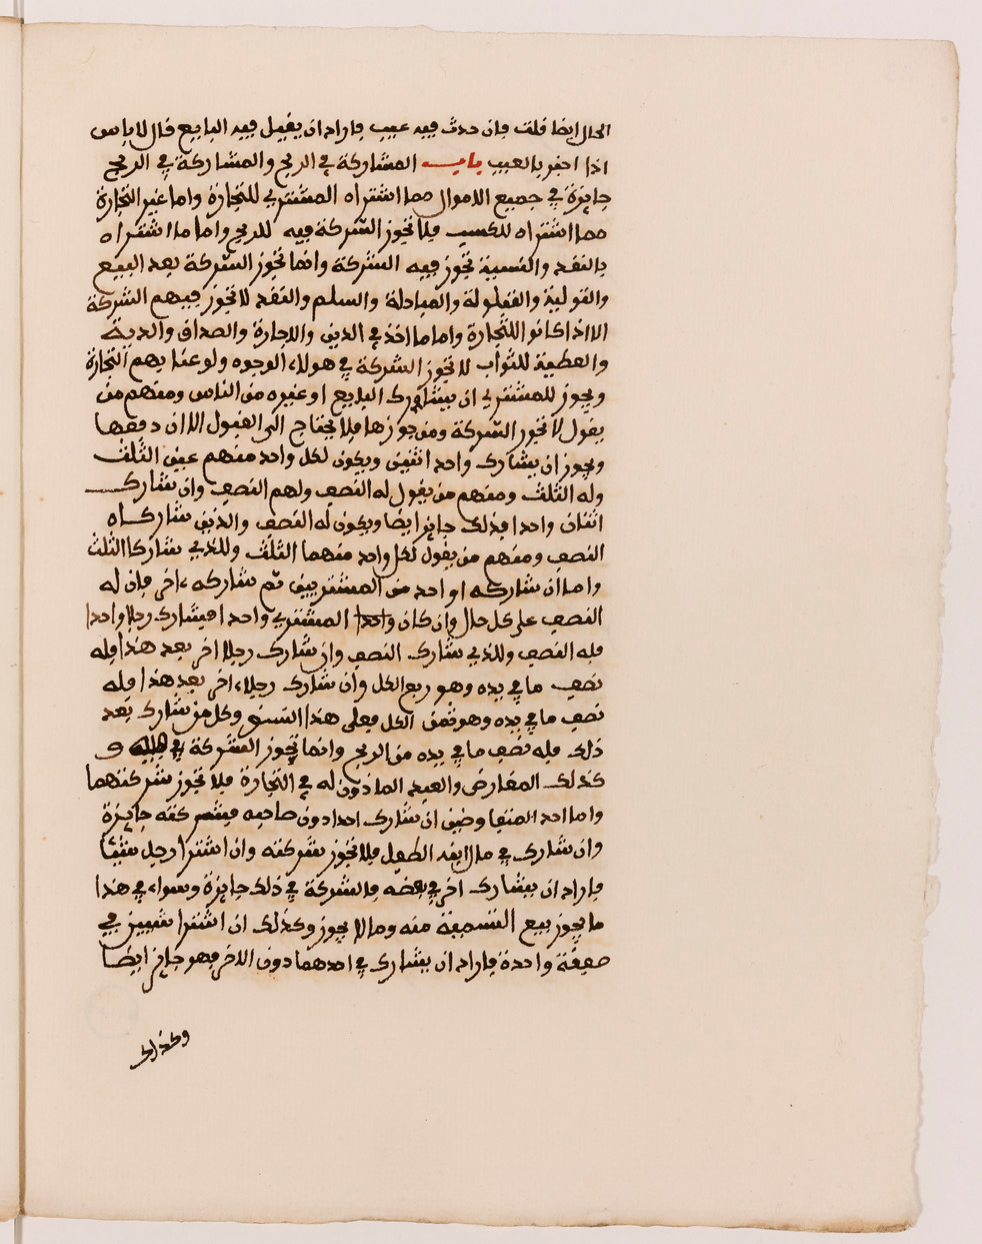 الحال ايضا قلت فان حدث فيه عيب فاراد ان يقيل فيه البايع قال لا باس
اذا اخبر بالعيب باب المشاركة في الربح والمشاركة في الربح
جايزة في جميع الاموال مما اشتراه المشتري للتجارة واما غير التجارة
مما اشتراه للكسب فلا تجوز الشركة فيه للربح واما ما اشتراه
بالنقد والنسية تجوز فيه الشركة وانما تجوز الشركة بعد البيع
والتولية والقيلولة والمبادلة والسلم والنقد لا تجوز فيهم الشركة
الا اذا كانوا للتجارة واما ما اخذ في الدين والاجارة والصداق والدية
والعطية للثواب لا تجوز الشركة في هولاء الوجوه ولو عنا بهم التجارة
ويجوز للمشتري ان يشارك البايع او غيره من الناس ومنهم من
يقول لا تجوز الشركة ومن جوزها فلا يحتاج الى القبول الا ان دفعها
ويجوز ان يشارك واحد اثنين ويكون لكل واحد منهم عين الثلث
وله الثلث ومنهم من يقول له النصف ولهم النصف وان شارك
اثنان واحدا فذلك جايز ايضا ويكون له النصف والذين شاركاه
النصف ومنهم من يقول لكل واحد منهما الثلث وللذي شاركا الثلث
واما ان شاركه او احد من المشتريين ثم شاركه اخر فان له
النصف على كل حال وان كان المشتري واحدا فيشارك رجلا واحدا
فله النصف وللذي شارك النصف وان شارك رجلا اخر بعد هذا فله
نصف ما في يده وهو ربع الكل وان شارك رجلا اخر بعد هذا فله
نصف ما في يده وهو ثمن الكل فعلى هذا السنن وكل من شارك بعد
ذلك فله نصف ما في يده من الربح وانما تجوز الشركة في و
كذلك المقارض والعبد الماذون له في التجارة فلا تجوز شركتهما
واما احد المتفاوضين ان شارك احدا دون صاحبه فشركته جايزة
وان شارك في مال ابنه الطفل فلا تجوز شركته وان اشترا رجل شيئا
فاراد ان يشارك اخر في بعضه فالشركة في ذلك جايزة وسواء في هذا
ما يجوز بيع التسمية منه وما لا يجوز وكذلك ان اشترا شيين في
صفقة واحدة فاراد ان يشارك في احدهما دون الاخر فهو جايز ايضا
وكذلك